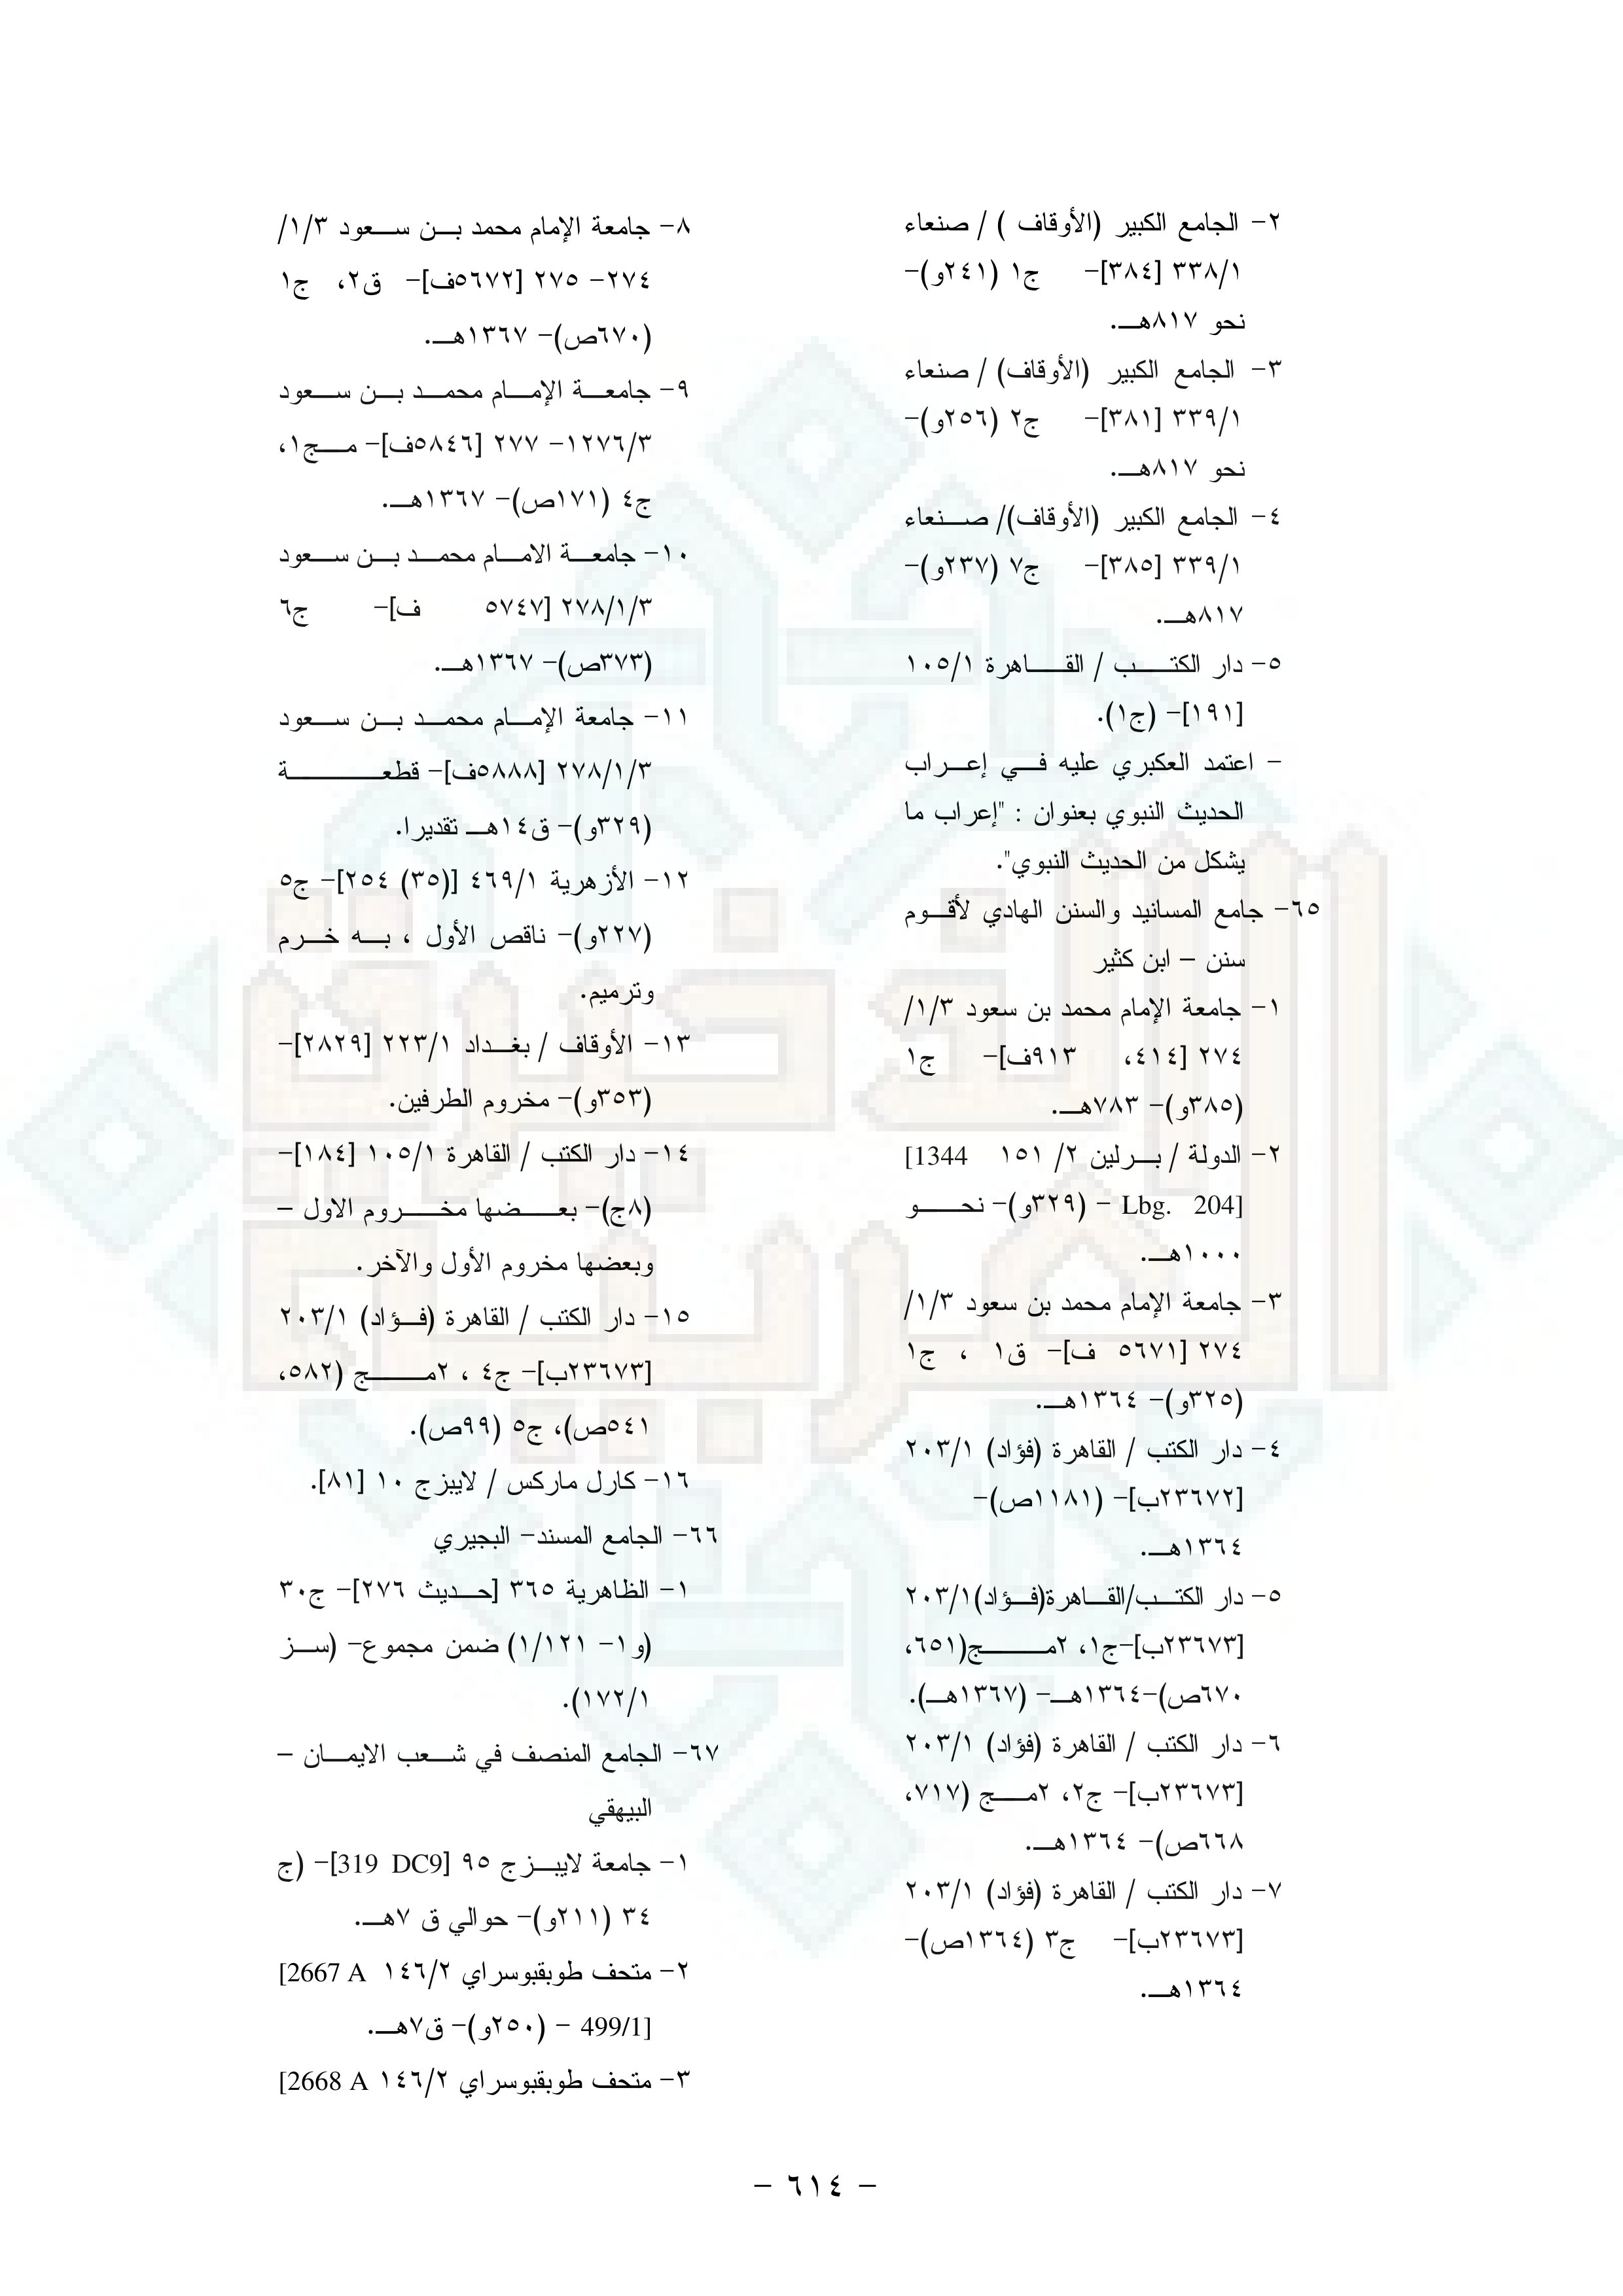 ٢- الجامع الكبير (الأوقاف ) / صنعاء
٣٣٨/١ [٣٨٤]- ج١ (٢٤١و)-
نحو ٨١٧هـ.
٣- الجامع الكبير (الأوقاف) / صنعاء
٣٣٩/١ [٣٨١]- ج٢ (٢٥٦و)-
نحو ٨١٧هـ.
٤- الجامع الكبير (الأوقاف)/ صنعاء
٣٣٩/١ [٣٨٥]- ج٧ (٢٣٧و)-
٨١٧هـ.
٥- دار الكتب / القاهرة ١٠٥/١
[١٩١]- (ج١).
- اعتمد العكبري عليه في إعراب
الحديث النبوي بعنوان : "إعراب ما
يشكل من الحديث النبوي".
٦٥- جامع المسانيد والسنن الهادي لأقوم
سنن – ابن كثير
١- جامعة الإمام محمد بن سعود ١/٣/
٢٧٤ [٤١٤، ٩١٣ف]- ج١
(٣٨٥و)- ٧٨٣هـ.
٢- الدولة / برلين ٢/ ١٥١ [1344
Lbg. 204] - (٣٢٩و)- نحو
١٠٠٠هـ.
٣- جامعة الإمام محمد بن سعود ١/٣/
٢٧٤ [٥٦٧١ ف]- ق١ ، ج١
(٣٢٥و)- ١٣٦٤هـ.
٤- دار الكتب / القاهرة (فؤاد) ٢٠٣/١
[٢٣٦٧٢ب]- (١١٨١ص)-
١٣٦٤هـ.
٥- دار الكتب/القاهرة(فؤاد)٢٠٣/١
[٢٣٦٧٣ب]-ج١، ٢مج(٦٥١،
٦٧٠ص)-١٣٦٤هـ- (١٣٦٧هـ).
٦- دار الكتب / القاهرة (فؤاد) ٢٠٣/١
[٢٣٦٧٣ب]- ج٢، ٢مج (٧١٧،
٦٦٨ص)- ١٣٦٤هـ.
٧- دار الكتب / القاهرة (فؤاد) ٢٠٣/١
[٢٣٦٧٣ب]- ج٣ (١٣٦٤ص)-
١٣٦٤هـ.
٨- جامعة الإمام محمد بن سعود ١/٣/
٢٧٤- ٢٧٥ [٥٦٧٢ف]- ق٢، ج١
(٦٧٠ص)- ١٣٦٧هـ.
٩- جامعة الإمام محمد بن سعود
١٢٧٦/٣- ٢٧٧ [٥٨٤٦ف]- مج١،
ج٤ (١٧١ص)- ١٣٦٧هـ.
١٠- جامعة الامام محمد بن سعود
٢٧٨/١/٣ [٥٧٤٧ ف]- ج٦
(٣٧٣ص)- ١٣٦٧هـ.
١١- جامعة الإمام محمد بن سعود
٢٧٨/١/٣ [٥٨٨٨ف]- قطعة
(٣٢٩و)- ق١٤هـ تقديرا.
١٢- الأزهرية ٤٦٩/١ [(٣٥) ٢٥٤]- ج٥
(٢٢٧و)- ناقص الأول ، به خرم
وترميم.
١٣- الأوقاف / بغداد ٢٢٣/١ [٢٨٢٩]-
(٣٥٣و)- مخروم الطرفين.
١٤- دار الكتب / القاهرة ١٠٥/١ [١٨٤]-
(٨ج)- بعضها مخروم الاول –
وبعضها مخروم الأول والآخر.
١٥- دار الكتب / القاهرة (فؤاد) ٢٠٣/١
[٢٣٦٧٣ب]- ج٤ ، ٢مج (٥٨٢،
٥٤١ص)، ج٥ (٩٩ص).
١٦- كارل ماركس / لايبزج ١٠ [٨١].
٦٦- الجامع المسند- البجيري
١- الظاهرية ٣٦٥ [حديث ٢٧٦]- ج٣٠
(و١- ١/١٢١) ضمن مجموع- (سز
١٧٢/١).
٦٧- الجامع المنصف في شعب الايمان –
البيهقي
١- جامعة لايبزج ٩٥ [319 DC9]- (ج
٣٤ (٢١١و)- حوالي ق ٧هـ.
٢- متحف طوبقبوسراي ١٤٦/٢ [2667 A
499/1] - (٢٥٠و)- ق٧هـ.
٣- متحف طوبقبوسراي ١٤٦/٢ [2668 A
- ٦١٤ -
الذخيرة
العربية